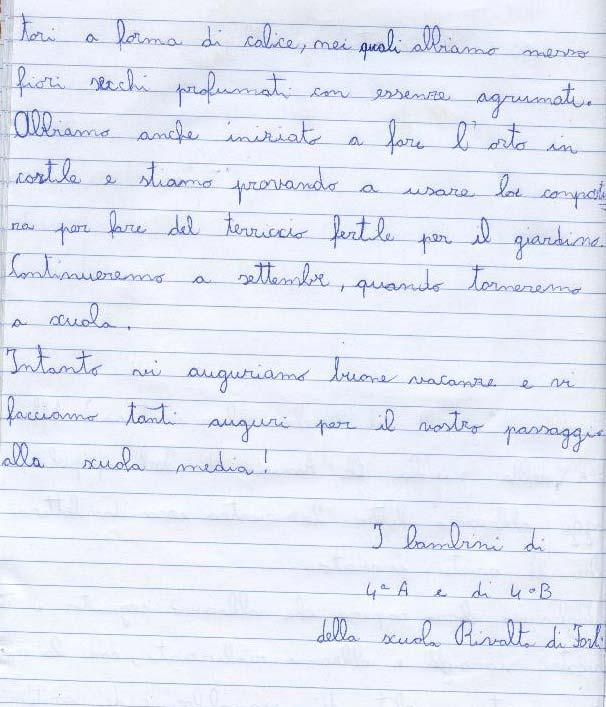 tori a forma di calice, nei quali abbiamo messo
fiori secchi profumati con essenze agrumate.
Abbiamo anche iniziato a fare l'orto in
cortile e stiamo provando a usare la composti
na per fare del terriccio fertile per il giardino.
Continueremo a settembre, quando torneremo
a scuola.
Intanto vi auguriamo buone vacanze e vi
facciamo tanti auguri per il vostro passaggio
alla scuola media!
I bambini di
4ª A e di 4ª B
della scuola Rivalta di Forlì